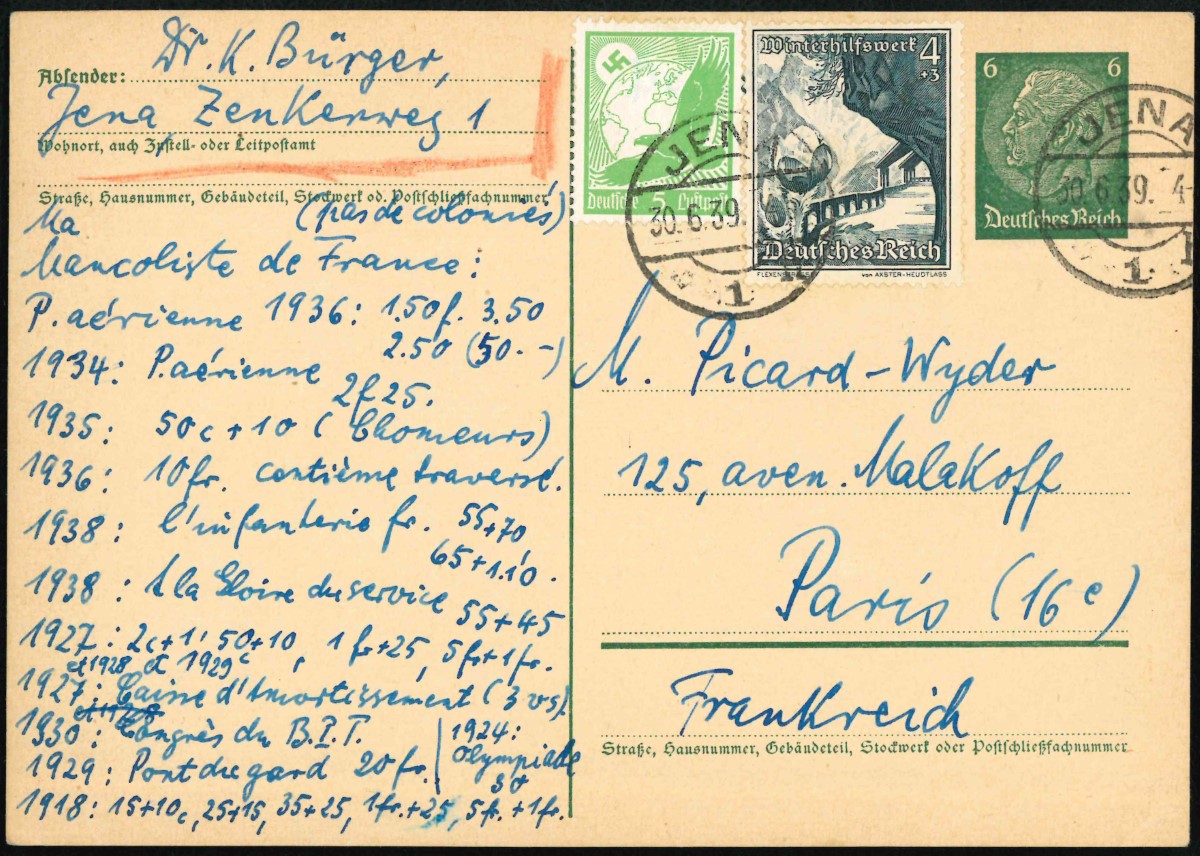 Absender: Dr. K. Bürger,
Jena, Zenkerweg 1
Wohnort, auch Zustell- oder Leitpostamt
Straße, Hausnummer, Gebäudeteil, Stockwerk od. Postschließfachnummer
Ma (pas de colonies)
Mancoliste de France:
P. aérienne 1936: 1.50f. 3.50
2.50 (50.-)
1934: P. aérienne
2f25.
1935: 50c+10 (Chomeurs)
1936: 10fr. centième traversé.
1938: l'infanterie fr. 55+70
65+1.10.
1938: A la Gloire du service
55+45
1927: 2c+1, 50+10, 1fr+25, 5fr+1fr.
et 1928 et 1929
1927: Caisse d'Amortissement (3 vs).
et 1928
1930: Congrès du B.I.T.
1929: Pont du gard 20fr.
1924:
Olympiade
30
1918: 15+10c, 25+15, 35+25, 1fr.+25, 5fr.+1fr.
Deutsche 5 Luftpost
Winterhilfswerk 4
+3
Deutsches Reich
FLEXENSTRASSE VON AXSTER-HEUDTLASS
6 6
Deutsches Reich
JENA
30.6.39.
1
JENA
30.6.39. 4-
1
M. Picard-Wyder
125, aven. Malakoff
Paris (16e)
Frankreich
Straße, Hausnummer, Gebäudeteil, Stockwerk oder Postschließfachnummer